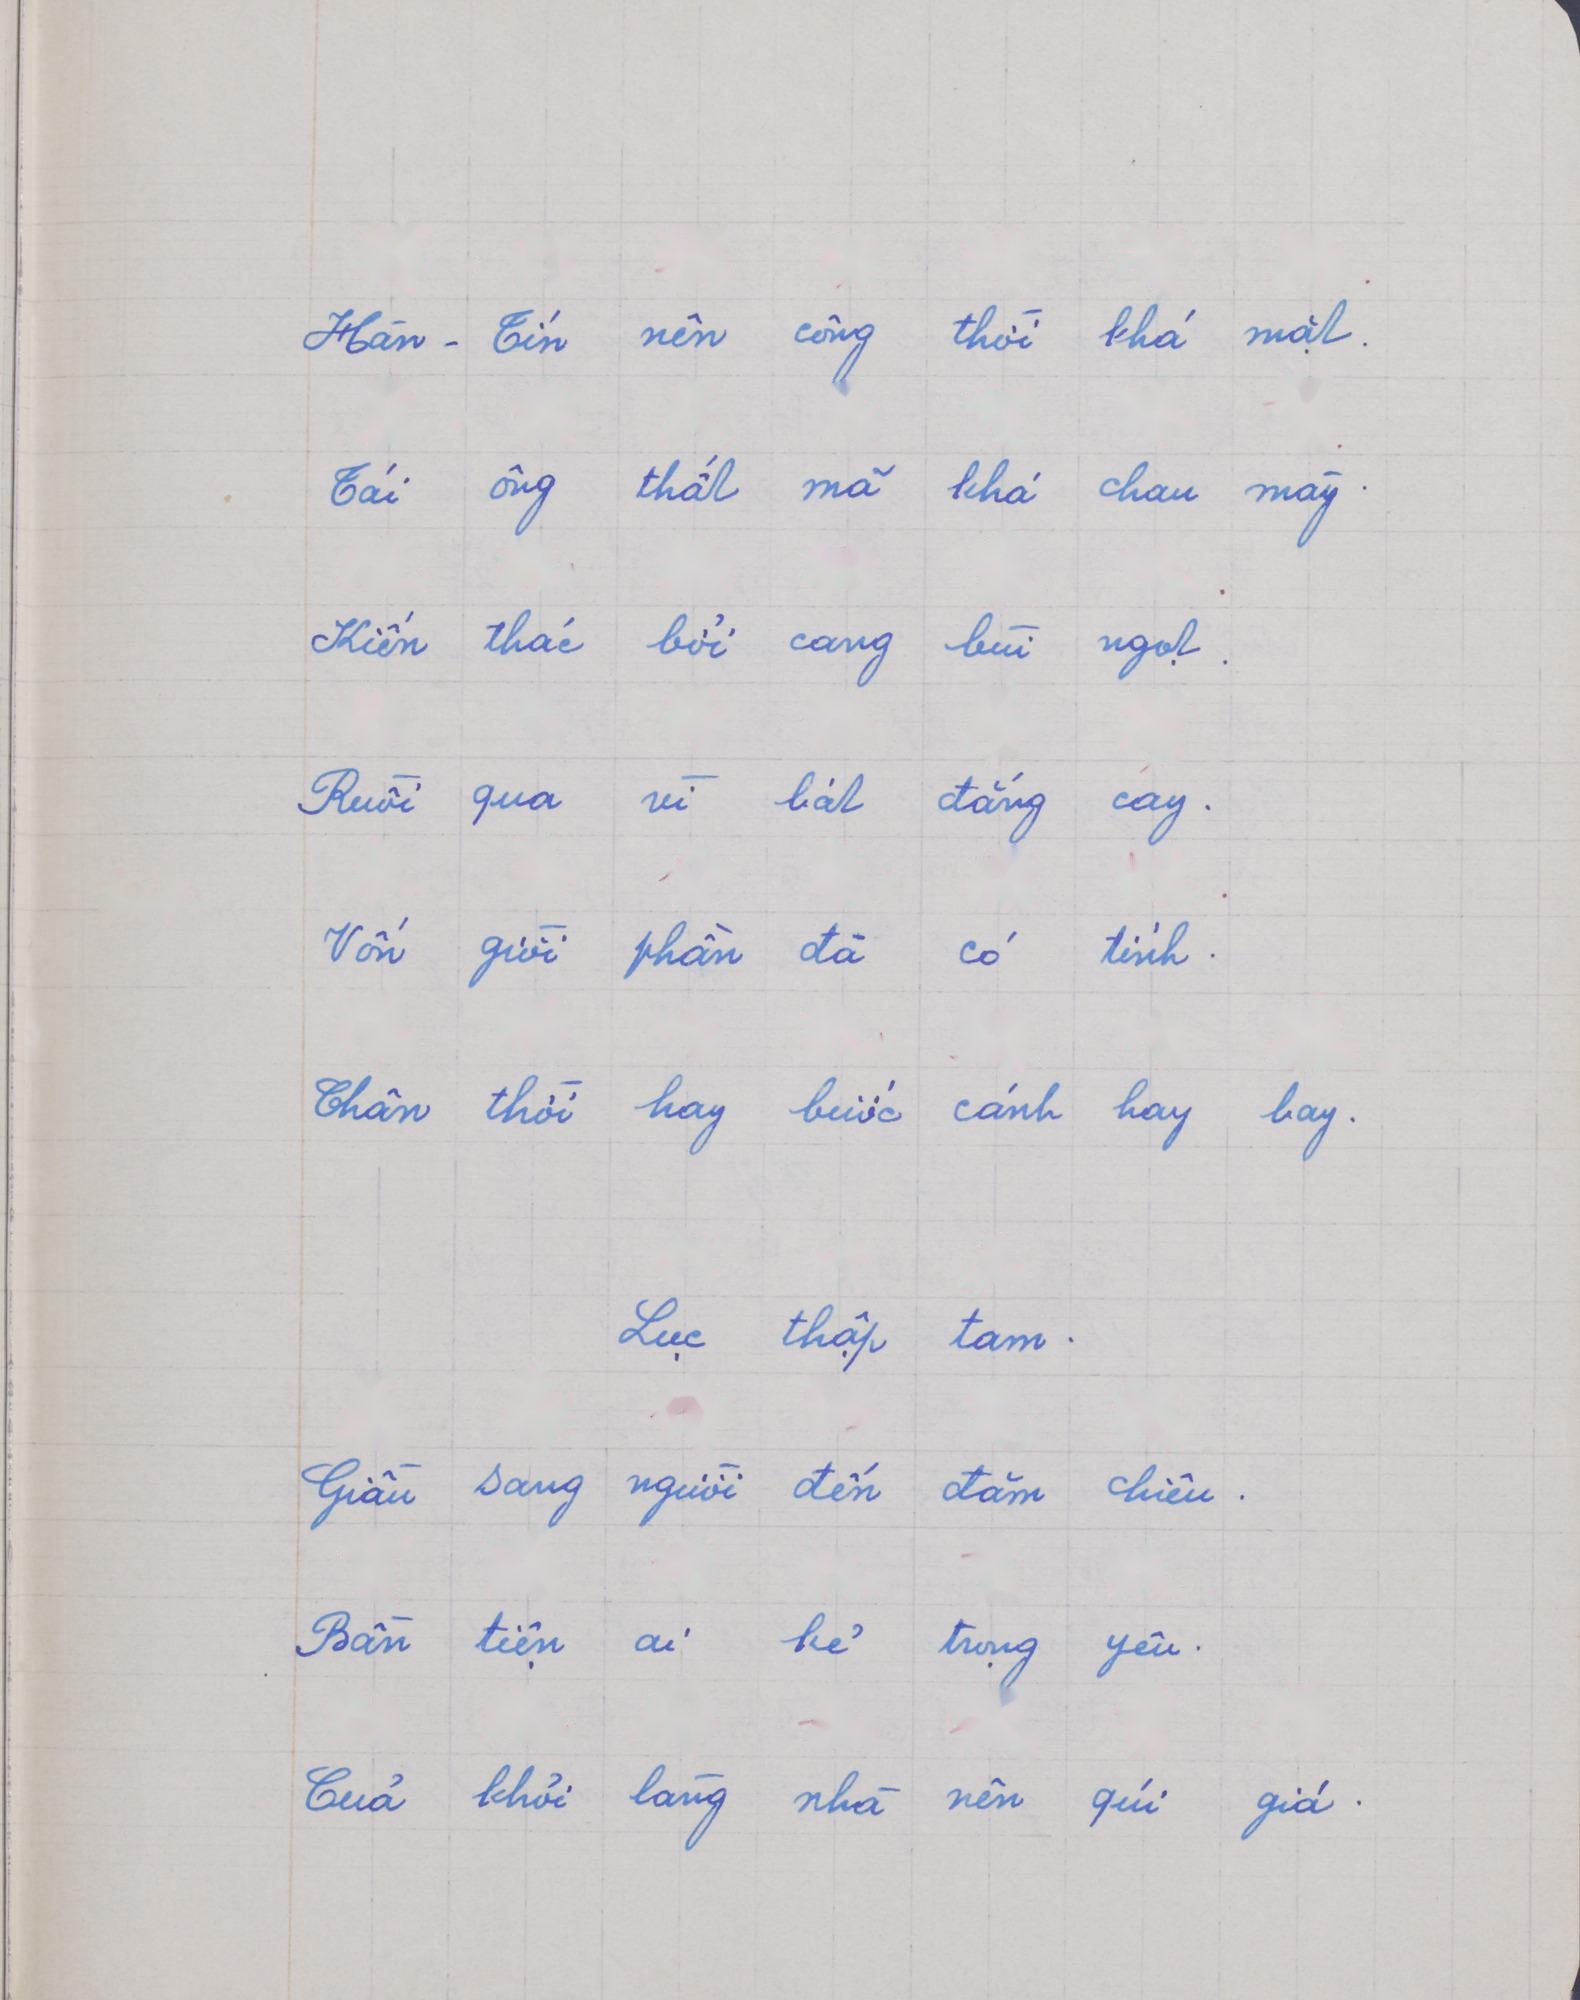 Hàn - Tín nên công thời khá mặt.
Tái ông thất mã khá chau mày.
Kiến thác bởi cang bùi ngọt.
Ruồi qua vì bát đắng cay.
Vốn giời phần đà có tính.
Chân thời hay bước cánh hay bay.
Lục thập tam.
Giầu sang người đến đăm chiêu.
Bần tiện ai kẻ trọng yêu.
Cuả khỏi làng nhà nên quí giá.